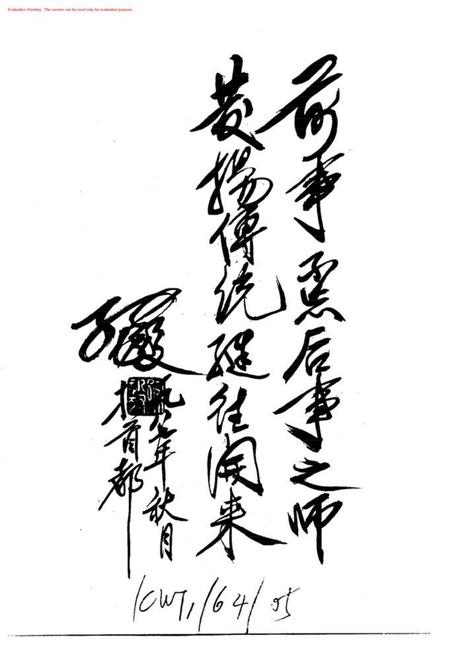 Evaluation Warning : The version can be used only for evaluation purpose.
前事不忘后事之师
发揚傳统继往開来
年秋月
首都